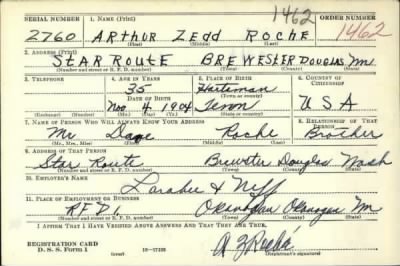 1462
SERIAL NUMBER 1. NAME (Print) ORDER NUMBER
2760 ARTHUR ZEDD ROCHE 1462
(First) (Middle) (Last)
2. ADDRESS (Print)
STAR ROUTE BREWESTER DOUGLAS Wn.
(Number and street or R. F. D. number) (Town) (County) (State)
3. TELEPHONE 4. AGE IN YEARS 5. PLACE OF BIRTH 6. COUNTRY OF CITIZENSHIP
35 Harteman
DATE OF BIRTH (Town or county)
Nov 4, 1904 Tenn U S A
(Exchange) (Number) (Mo.) (Day) (Yr.) (State or country)
7. NAME OF PERSON WHO WILL ALWAYS KNOW YOUR ADDRESS 8. RELATIONSHIP OF THAT PERSON
Mr Dave Roche Brother
(Mr., Mrs., Miss) (First) (Middle) (Last)
9. ADDRESS OF THAT PERSON
Star Route Brewster Douglas Wash
(Number and street or R. F. D. number) (Town) (County) (State)
10. EMPLOYER'S NAME
Larabee & Neff
11. PLACE OF EMPLOYMENT OR BUSINESS
R.F.D. 1 Okanogan Okanogan Wn
(Number and street or R. F. D. number) (Town) (County) (State)
I AFFIRM THAT I HAVE VERIFIED ABOVE ANSWERS AND THAT THEY ARE TRUE.
REGISTRATION CARD
D. S. S. Form 1 16—17105 A Z Roche
(Registrant's signature)